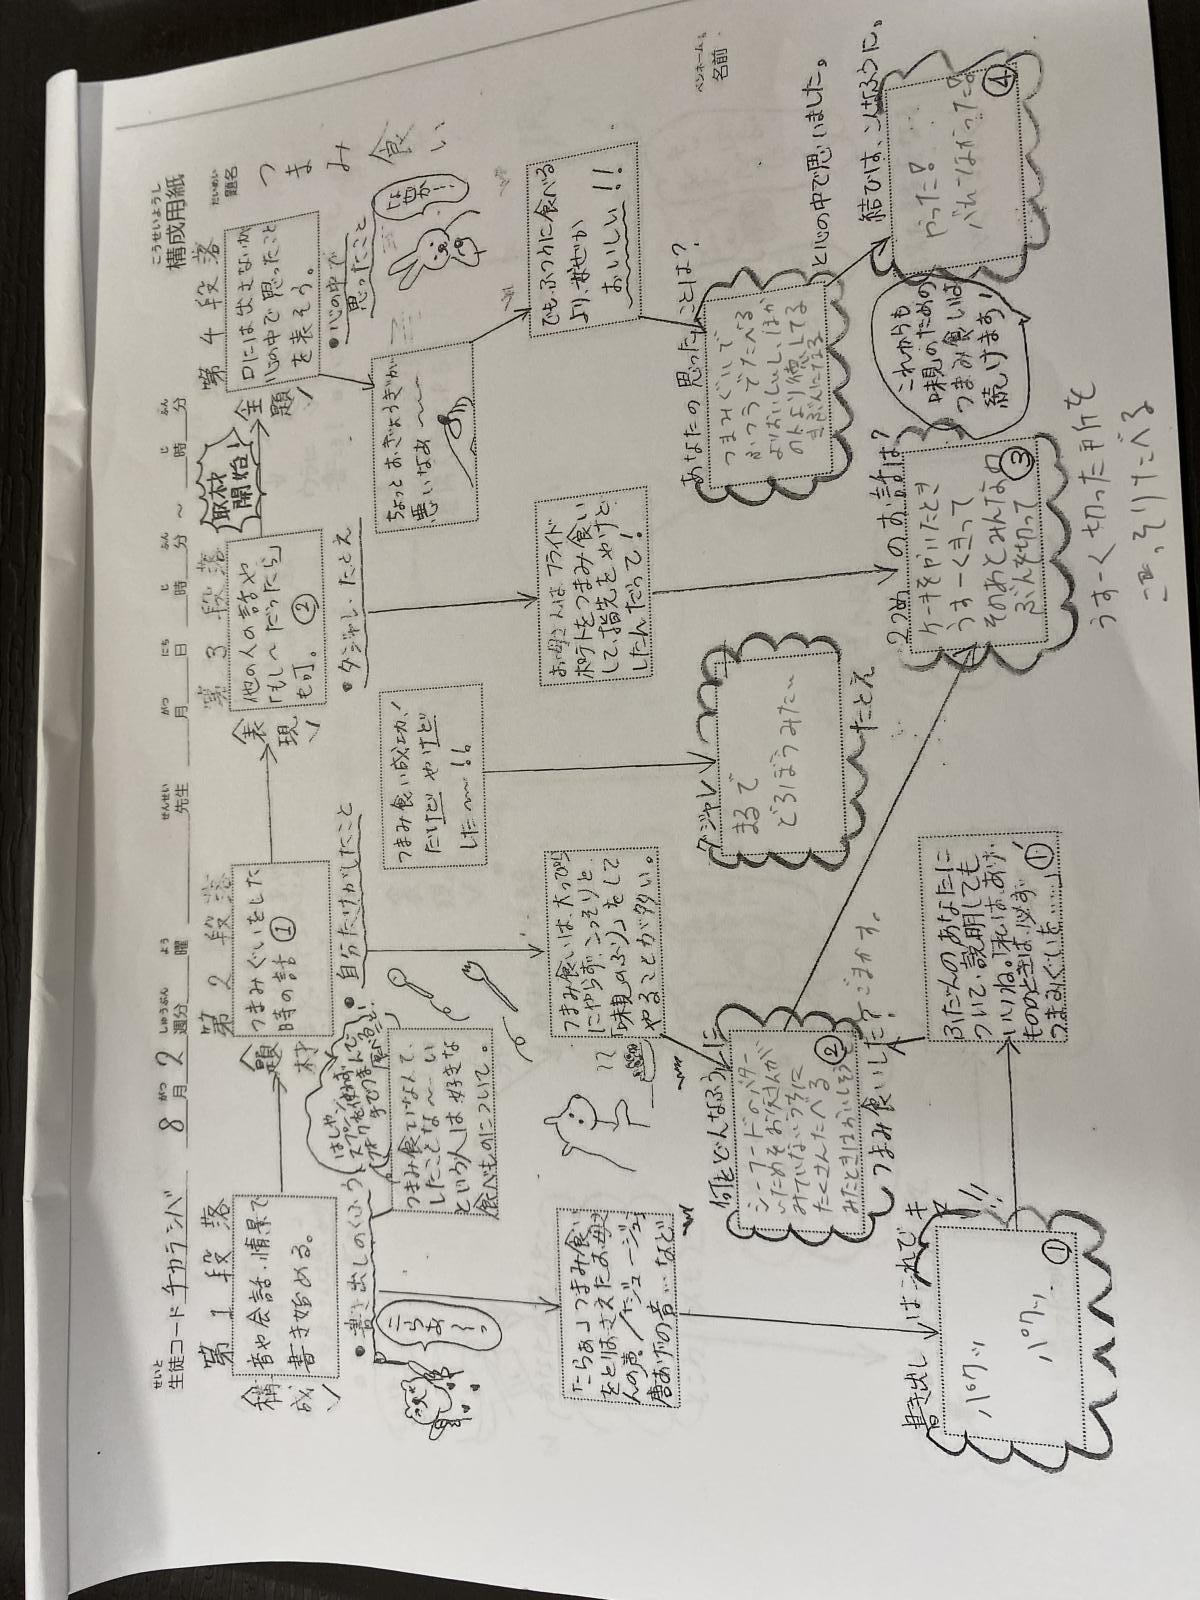 こうせいようし
構成用紙
せいと
生徒コード チカラシバ
がつ しゅうぶん よう
8月2週分 曜
せんせい
先生
がつ にち じ ふん じ ふん
月 日 時 分 ～ 時 分
だいめい
題名
つまみ食い
ペンネーム
名前
第1段落
構成
音や会話・情景で
書き始める。
第2段落
題材
つまみぐいをした
時の話①
第3段落
表現
他の人の話や
「もし～だったら」
も可。②
取材
開始!
第4段落
主題
口には出さないが
心の中で思ったこと
を表そう。
・書き出しのくふう
こらあ～っ
「こらぁ」つまみ食い
をとりおさえたお母
さんの声/「ジュージュー」
唐あげの音…など
書き出しはこれでキマリ!!
パクッ
パクッ
①
はしや
スプーン
フォークを使わず
手でつまんで
食べること
つまみ食いなんて、
したことな～い
という人は好きな
食べものについて。
・自分だけがしたこと
つまみ食いは、大っぴら
にやらず、こっそりと、
「味見のふり」をして
やることが多い。
何をどんなふうに
シーフードのバター
いためをお父さんが
みていないうちに
たくさんたべる
②
つまみ食いした?ごまかす。
ふだんのあなたに
ついて説明しても
いいね。「私は、あげ
もののときは、必ず
つまみぐいを……」①
・ダジャレ、たとえ
つまみ食い成功!
だけど やけど
した～!!
ダジャレ
まるで
どろぼうみたい
たとえ
お母さんはフライド
ポテトをつまみ食い
して、指先をやけど
したんだって!
2つめのお話は?
ケーキをやいたとき
うすーくきって
そのあとみんなの
ぶんを切って
③
うすーく切った所を
こっそりたべる
・心の中で
思ったこと
ちょっとおぎょうぎが
悪いなぁ～
でも、ふつうに食べる
より、なぜか
おいしい!!
あなたの思ったことは?
つまみぐいで
ふつうでたべる
よりおいしいし、ほか
の人より得してる
きぶんになる
と心の中で思いました。
結びは、こんなふうに。
やった!……
ばれてなかった!
④
これからも
味見のための
つまみ食いは
続けます!